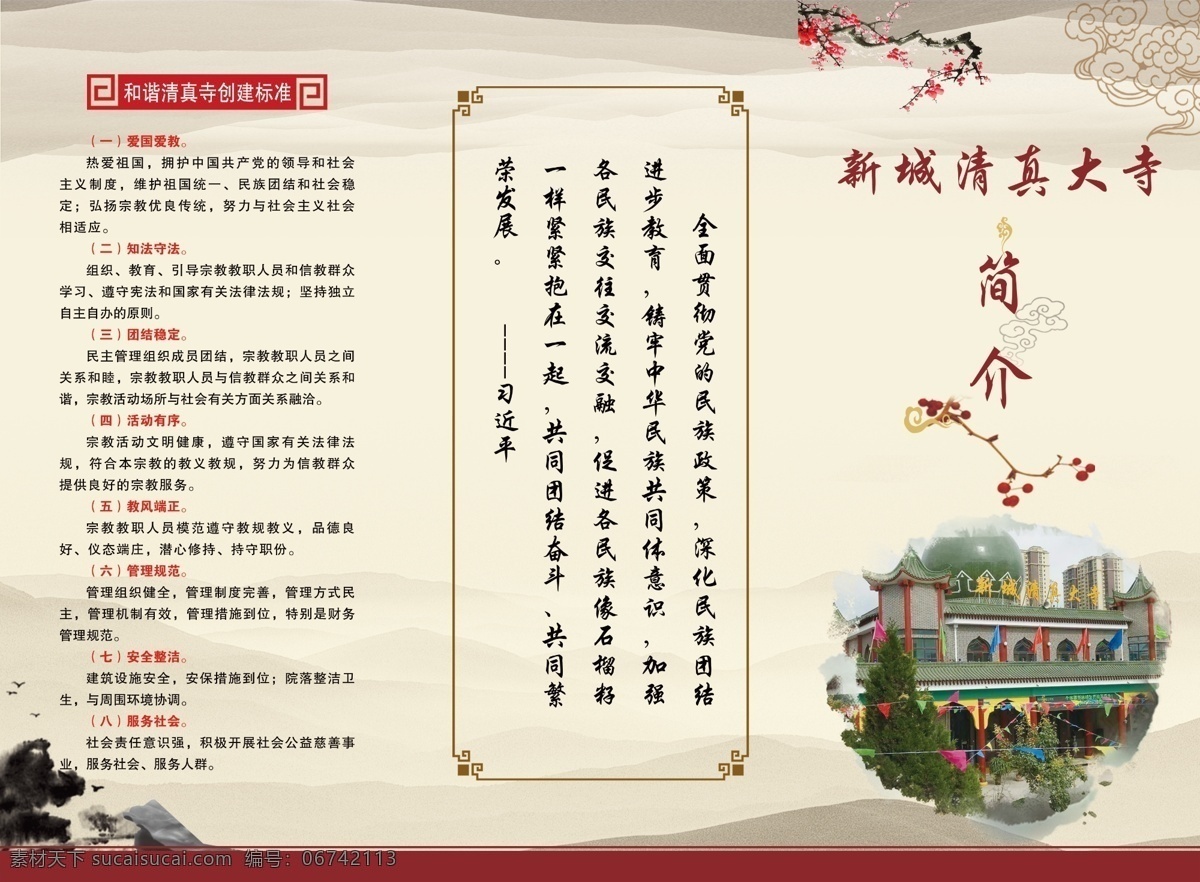 和谐清真寺创建标准
（一）爱国爱教。
热爱祖国，拥护中国共产党的领导和社会
主义制度，维护祖国统一、民族团结和社会稳
定；弘扬宗教优良传统，努力与社会主义社会
相适应。
（二）知法守法。
组织、教育、引导宗教教职人员和信教群众
学习、遵守宪法和国家有关法律法规；坚持独立
自主自办的原则。
（三）团结稳定。
民主管理组织成员团结，宗教教职人员之间
关系和睦，宗教教职人员与信教群众之间关系和
谐，宗教活动场所与社会有关方面关系融洽。
（四）活动有序。
宗教活动文明健康，遵守国家有关法律法
规，符合本宗教的教义教规，努力为信教群众
提供良好的宗教服务。
（五）教风端正。
宗教教职人员模范遵守教规教义，品德良
好、仪态端庄，潜心修持、持守职份。
（六）管理规范。
管理组织健全，管理制度完善，管理方式民
主，管理机制有效，管理措施到位，特别是财务
管理规范。
（七）安全整洁。
建筑设施安全，安保措施到位；院落整洁卫
生，与周围环境协调。
（八）服务社会。
社会责任意识强，积极开展社会公益慈善事
业，服务社会、服务人群。
全面贯彻党的民族政策，深化民族团结
进步教育，铸牢中华民族共同体意识，加强
各民族交往交流交融，促进各民族像石榴籽
一样紧紧抱在一起，共同团结奋斗、共同繁
荣发展。 ————习近平
新城清真大寺
简介
新城清真大寺
素材天下 sucaisucai.com 编号：06742113